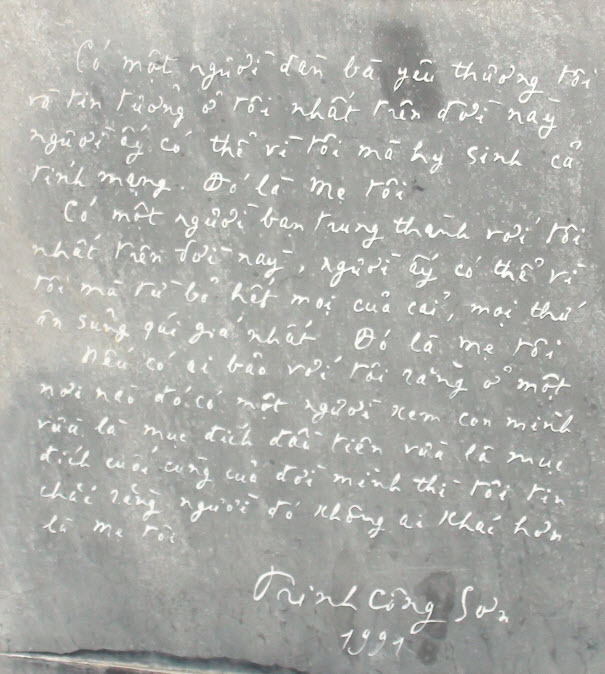 Có một người đàn bà yêu thương tôi
và tin tưởng ở tôi nhất trên đời này
người ấy có thể vì tôi mà hy sinh cả
tính mạng. Đó là mẹ tôi
Có một người bạn trung thành với tôi
nhất trên đời này, người ấy có thể vì
tôi mà từ bỏ hết mọi của cải, mọi thứ
ân sủng quí giá nhất Đó là mẹ tôi
Nếu có ai bảo với tôi rằng ở một
nơi nào đó có một người xem con mình
vừa là mục đích đầu tiên vừa là mục
đích cuối cùng của đời mình thì tôi tin
chắc rằng người đó không ai khác hơn
là mẹ tôi
Trịnh Công Sơn
1991